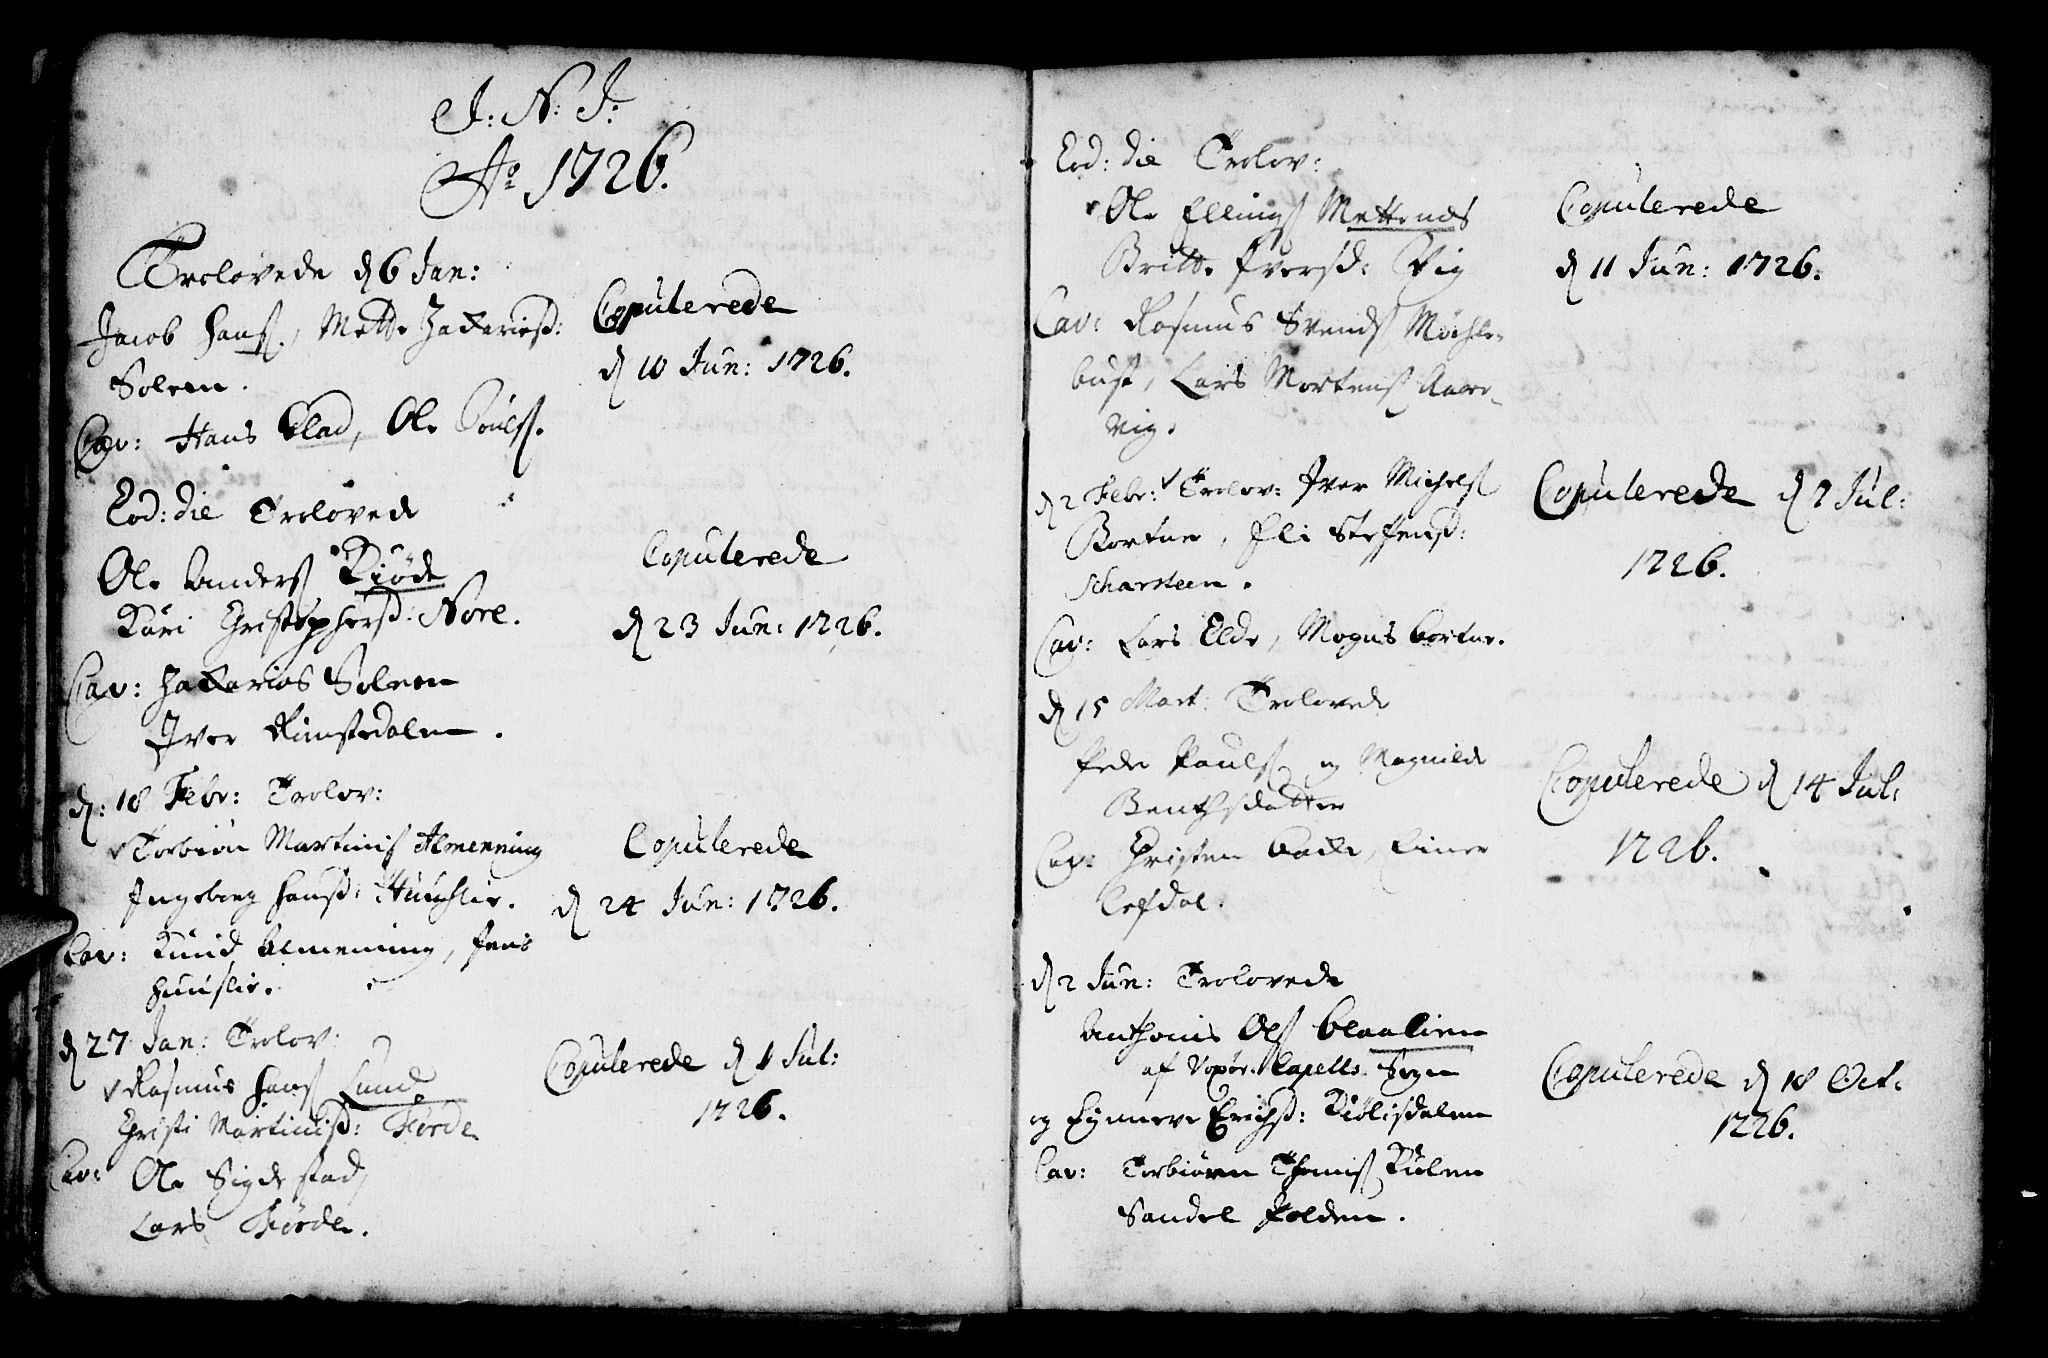 J: N: J:
Aº 1726.
Trolovede d 6 Jan:
Jacob Hanss., Mette Zakariæsd:
Soleen.
Cav: Hans Elad, Ole Poulss.
Eod: die Trolovede
Ole Anderss Kiöde
Kari Christophersd: Nore.
Cav: Zakarias Soleen
Iver Rimstedalen.
d: 18 Febr: Trolov:
Torbiön Martinss Almenning
Ingeborg Hansd: Huuslie.
Cav: Knud Almenning, Jens
Huuslie.
d 27 Jan: Trolov:
Rasmus Hanss Lund
Christi Martinsd: Förde
Cav: Ole Sigdestad,
Lars Förde.
Copulerede
d 10 Jun: 1726.
Copulerede
d 23 Jun: 1726.
Copulerede
d 24 Jun: 1726.
Copulerede d 1 Jul:
1726.
Eod: die Trolov:
Ole Ellingss Mettenes
Britte Iversd: Vig
Cav: Rasmus Svendss Mæhle-
bust, Lars Mortenss Aare-
vig.
d 2 Febr: Trolov: Iver Michelss
Bortne, Eli Steffensd:
Scharsteen.
Cav: Lars Elde, Mogns Bortne.
d 15 Mart: Trolovede
Peder Paulss og Magnilde
Benthsdatter
Cav: Christen Backe, Einer
Lefdal.
d 2 Jun: Trolovede
Anthonis Olss Blaalien
af Capells Sogn
og Synneve Erichsd: Kiölisdalen
Cav: Torbiörn Thomiss Kulen
Sandel Folden.
Copulerede
d 11 Jun: 1726.
Copulerede d 7 Jul:
1726.
Copulerede d 14 Jul:
1726.
Copulerede d 18 Oct:
1726.